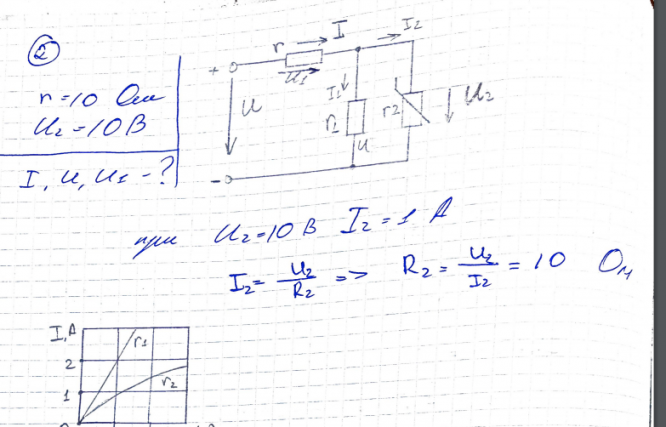 2
r = 10 Ом
U₂ = 10 В
I, U, U₁ - ?
r I I₂
+ U₁
U I₁ r₁ r₂ U₂
U
-
при U₂ = 10 В I₂ = 1 А
I₂ = U₂/R₂ => R₂ = U₂/I₂ = 10 Ом
I, А
r₁
2
r₂
1
0